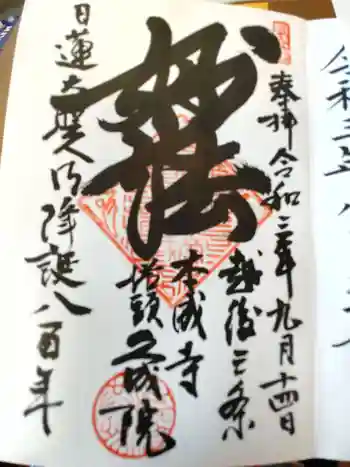 奉拝 令和三年九月十四日
越後三条
本成寺
妙法
塔頭 久成院
日蓮大聖人御降誕八百年